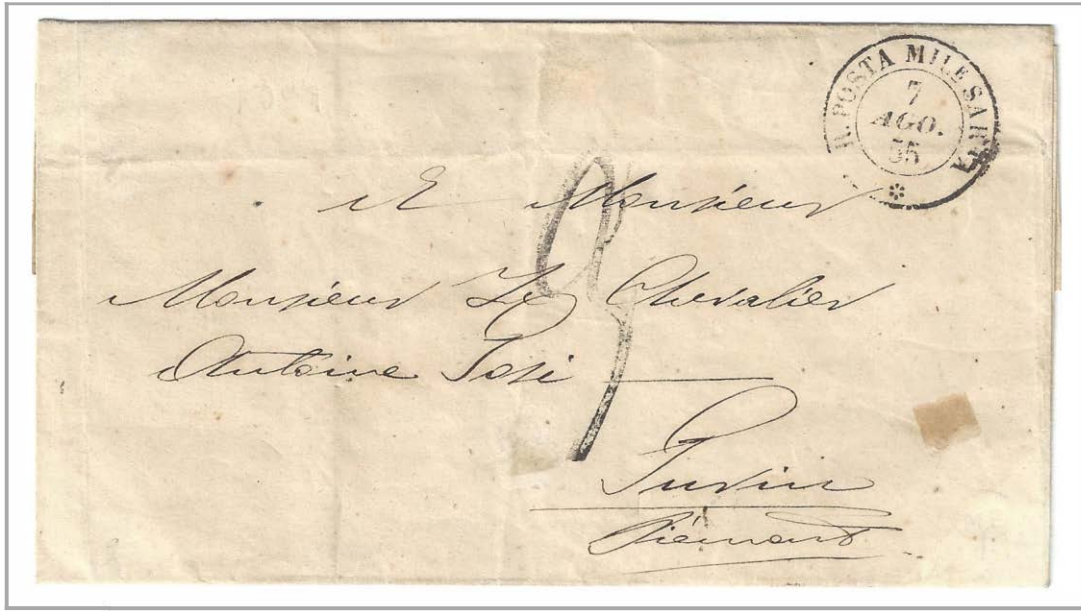 R. POSTA MILE SARDA
7
AGO.
55
A Monsieur
Monsieur Le Chevalier
Antoine
9
Turin
Piémont